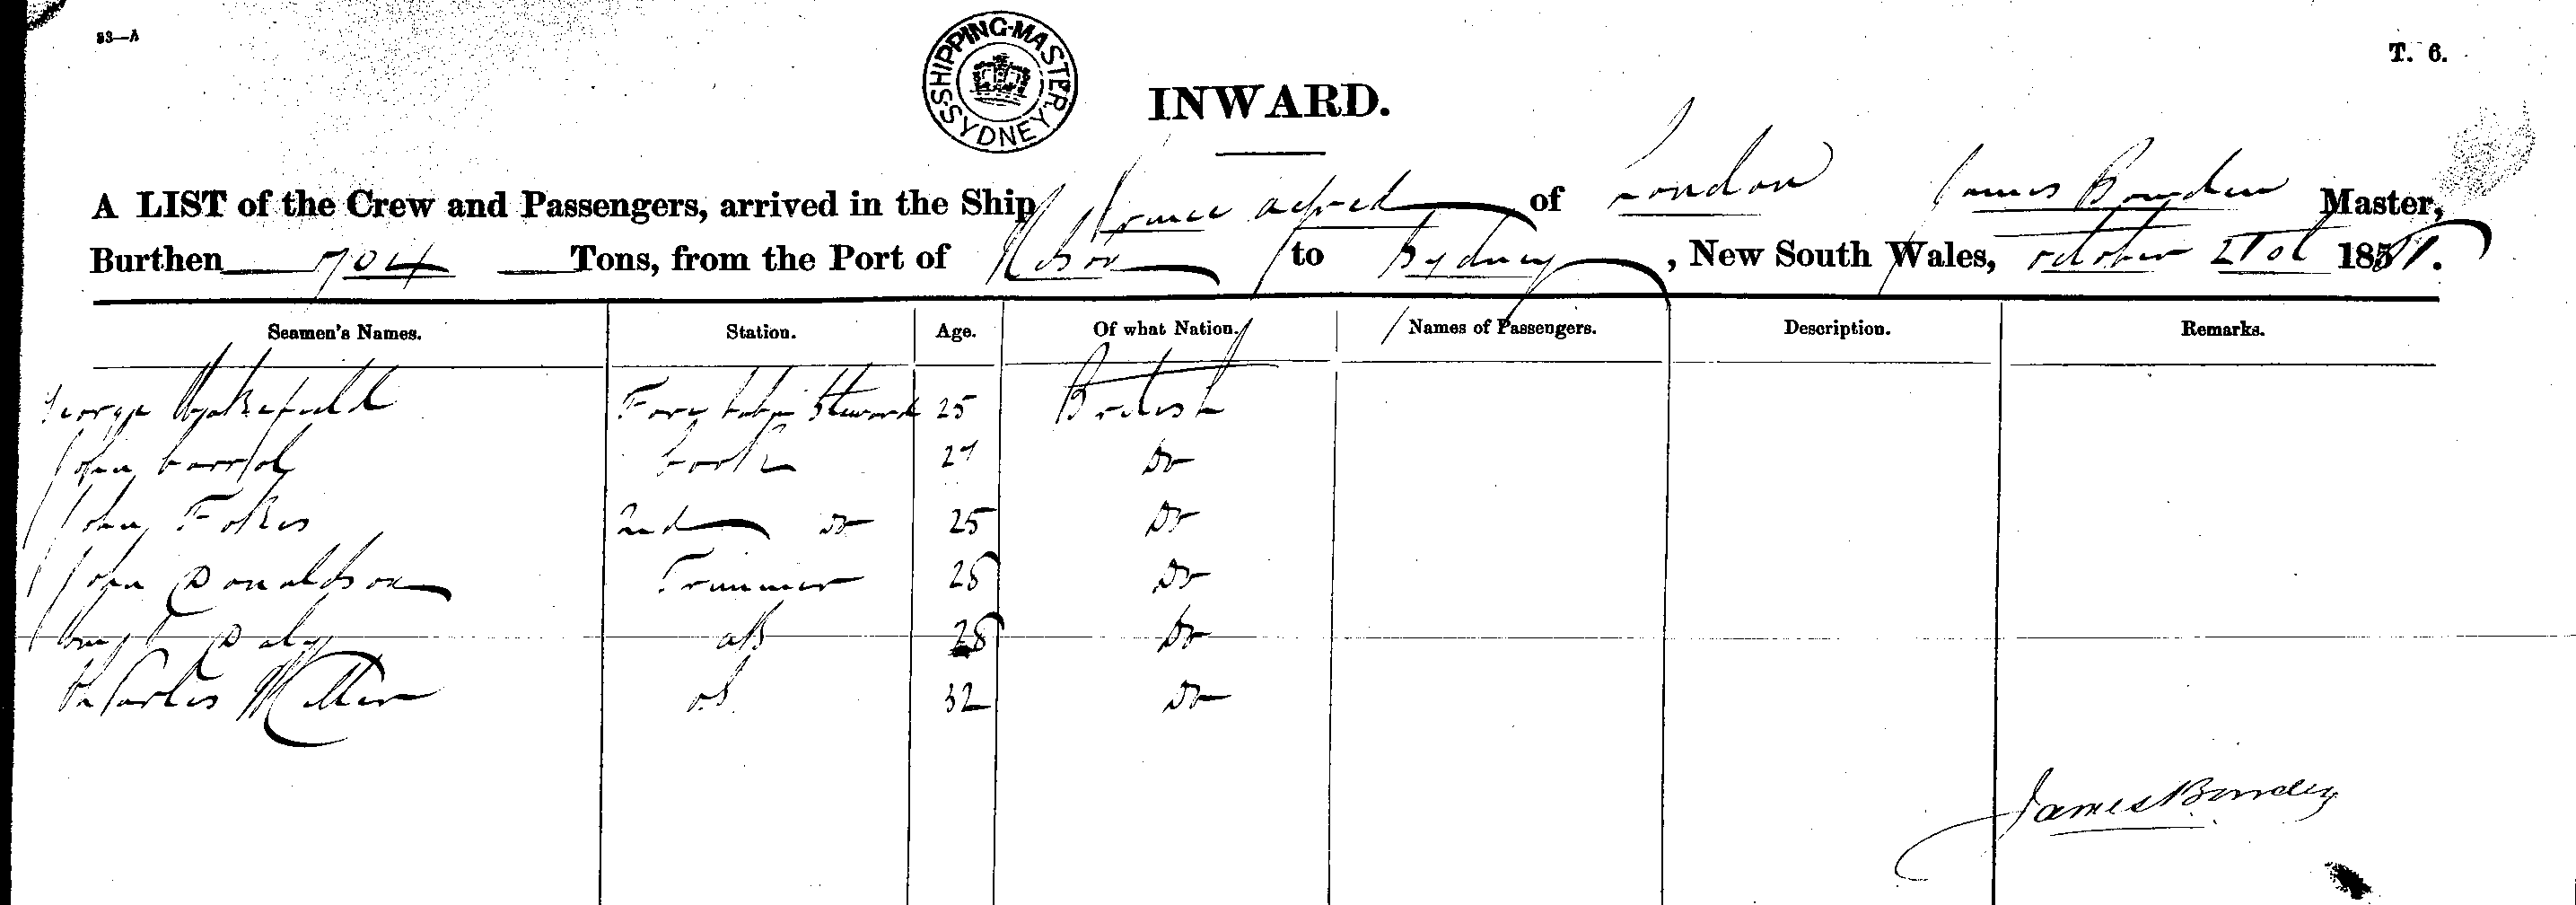 83—A
SHIPPING-MASTER SYDNEY
T. 6.
INWARD.
A LIST of the Crew and Passengers, arrived in the Ship Prince Alfred of London James Bowden Master,
Burthen 704 Tons, from the Port of Nelson to Sydney, New South Wales, October 21st 185
Seamen's Names. Station. Age. Of what Nation. Names of Passengers. Description. Remarks.
George Wakefield Fore Cabin Steward 25 British
John Cook 27 Do
John Fokes 2nd do 25 Do
John Donaldson Trimmer 28 Do
Daly AB 28 Do
Charles Miller 32 Do
James Bowden